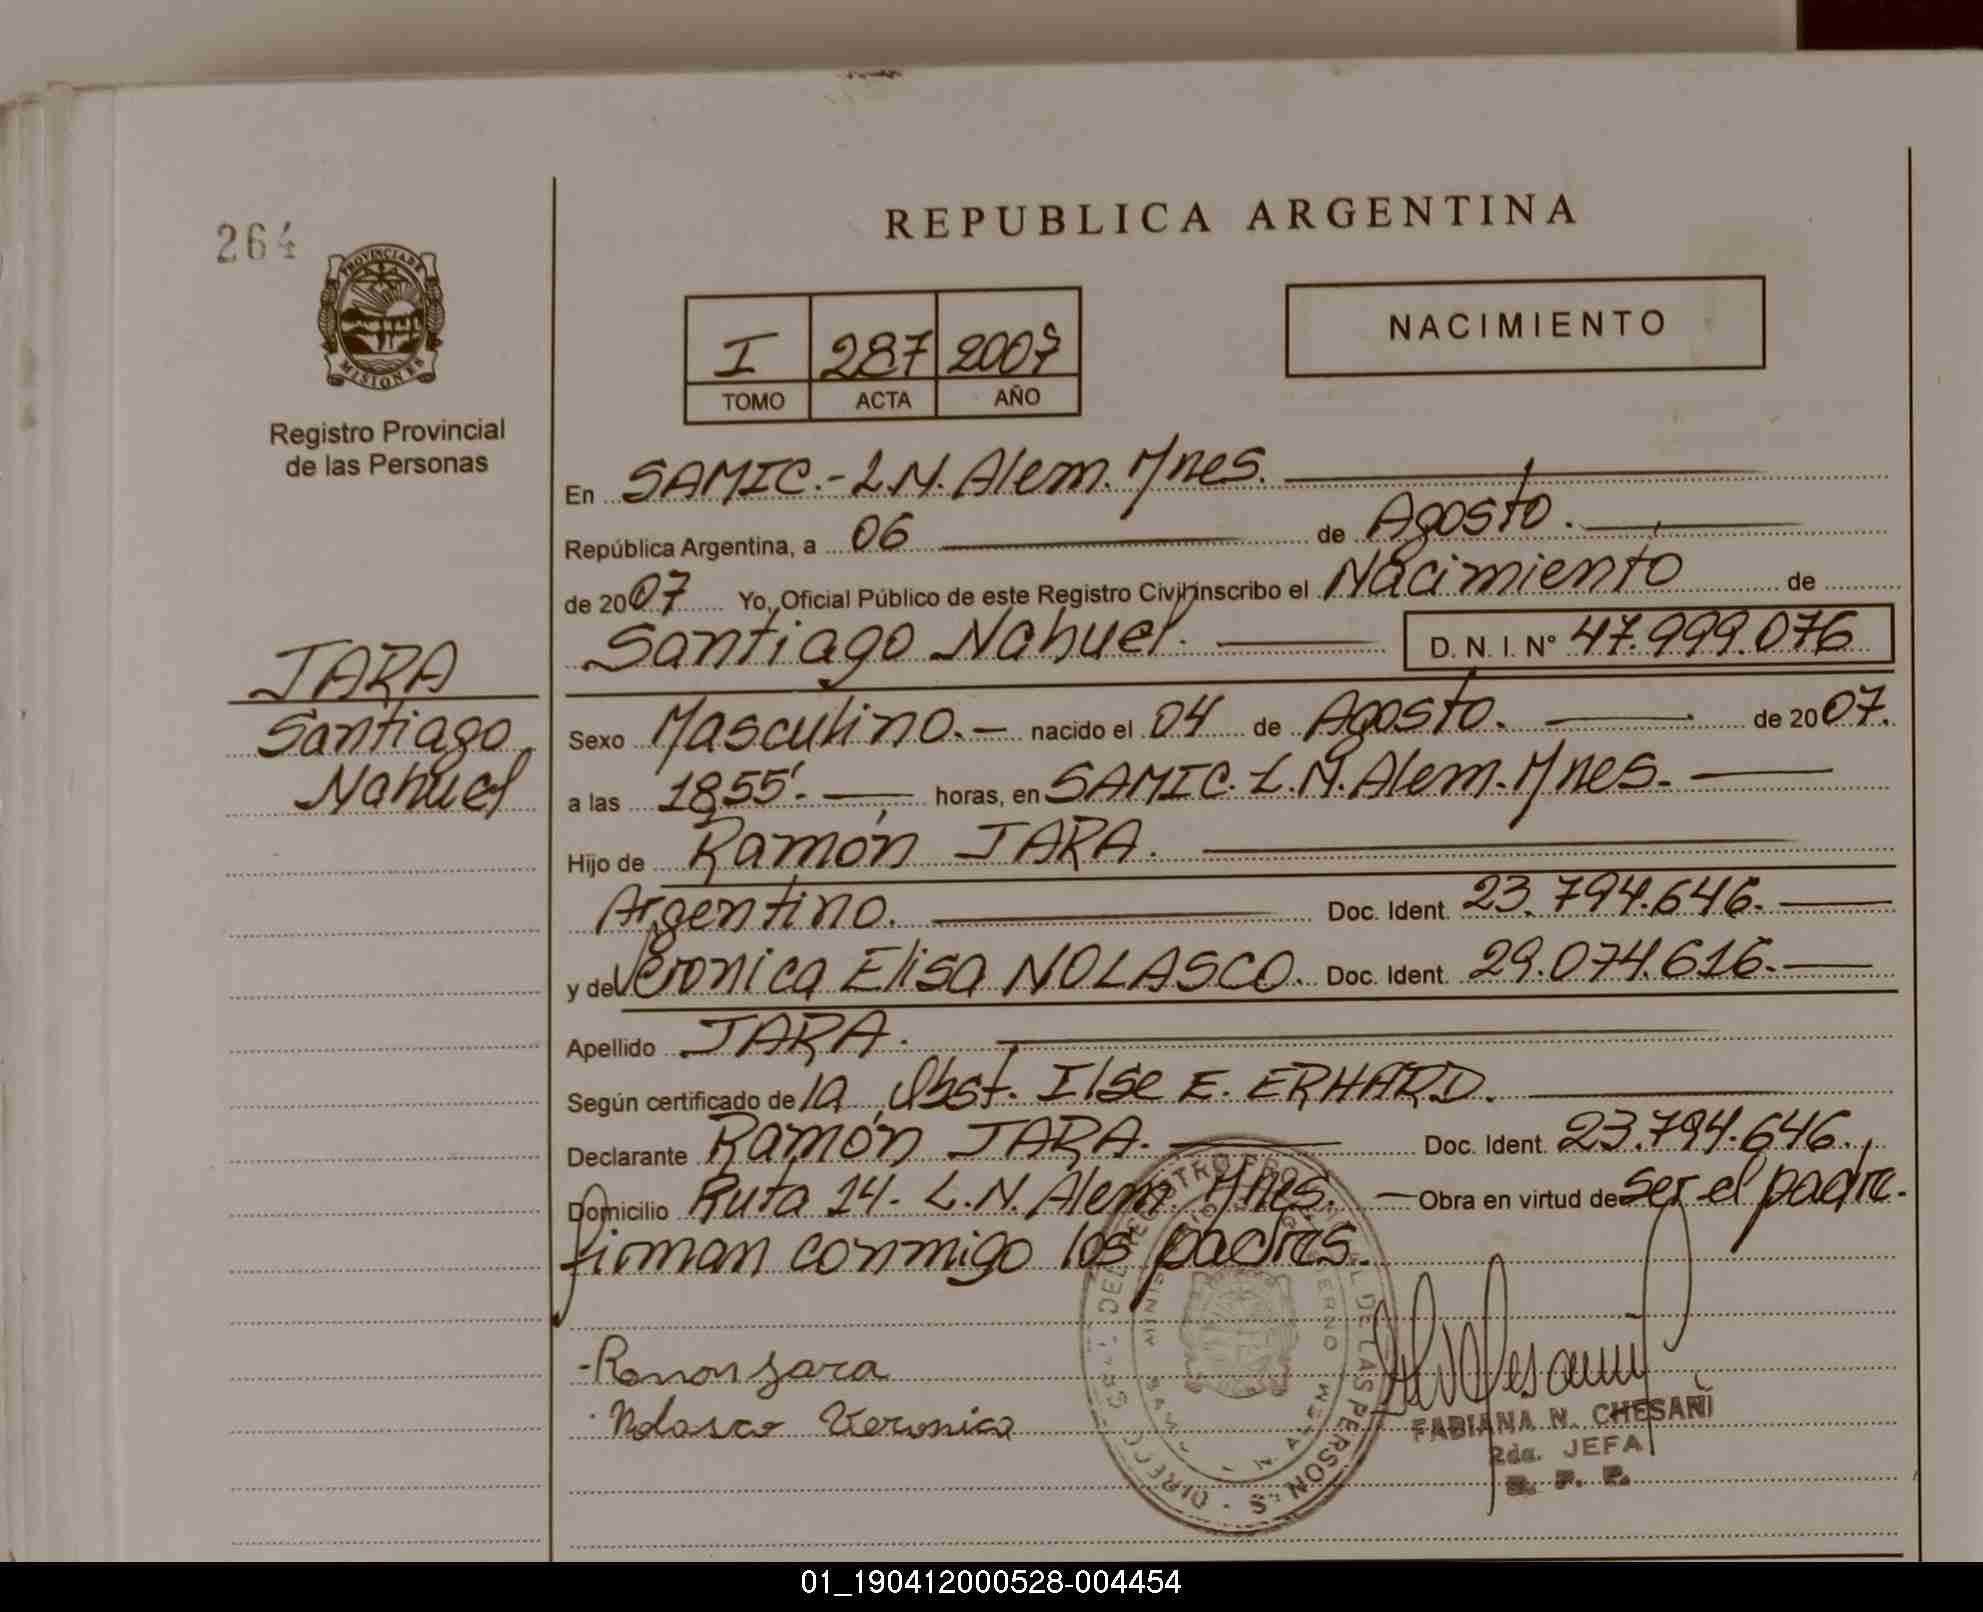 264
REPUBLICA ARGENTINA
PROVINCIA DE
MISIONES
Registro Provincial
de las Personas
I 287 2007
TOMO ACTA AÑO
NACIMIENTO
En SAMIC.- L.N. Alem. Mnes.
República Argentina, a 06 de Agosto.
de 2007 Yo, Oficial Público de este Registro Civil inscribo el Nacimiento de
Santiago Nahuel. D. N. I. Nº 47.999.076
JARA
Santiago
Nahuel
Sexo Masculino.- nacido el 04 de Agosto. de 2007.
a las 18,55'. horas, en SAMIC. L.N. Alem. Mnes.
Hijo de Ramón JARA.
Argentino. Doc. Ident. 23.794.646.
y de Veronica Elisa NOLASCO. Doc. Ident. 29.074.616.
Apellido JARA.
Según certificado de la Obst. Ilse E. ERHARD.
Declarante Ramón JARA. Doc. Ident. 23.794.646.
Domicilio Ruta 14. L.N. Alem. Mnes. Obra en virtud de ser el padre.
firman conmigo los padres.
-Ramon Jara
Nolasco Veronica
FABIANA N. CHESAÑI
2da. JEFA
R. P. P.
01_190412000528-004454